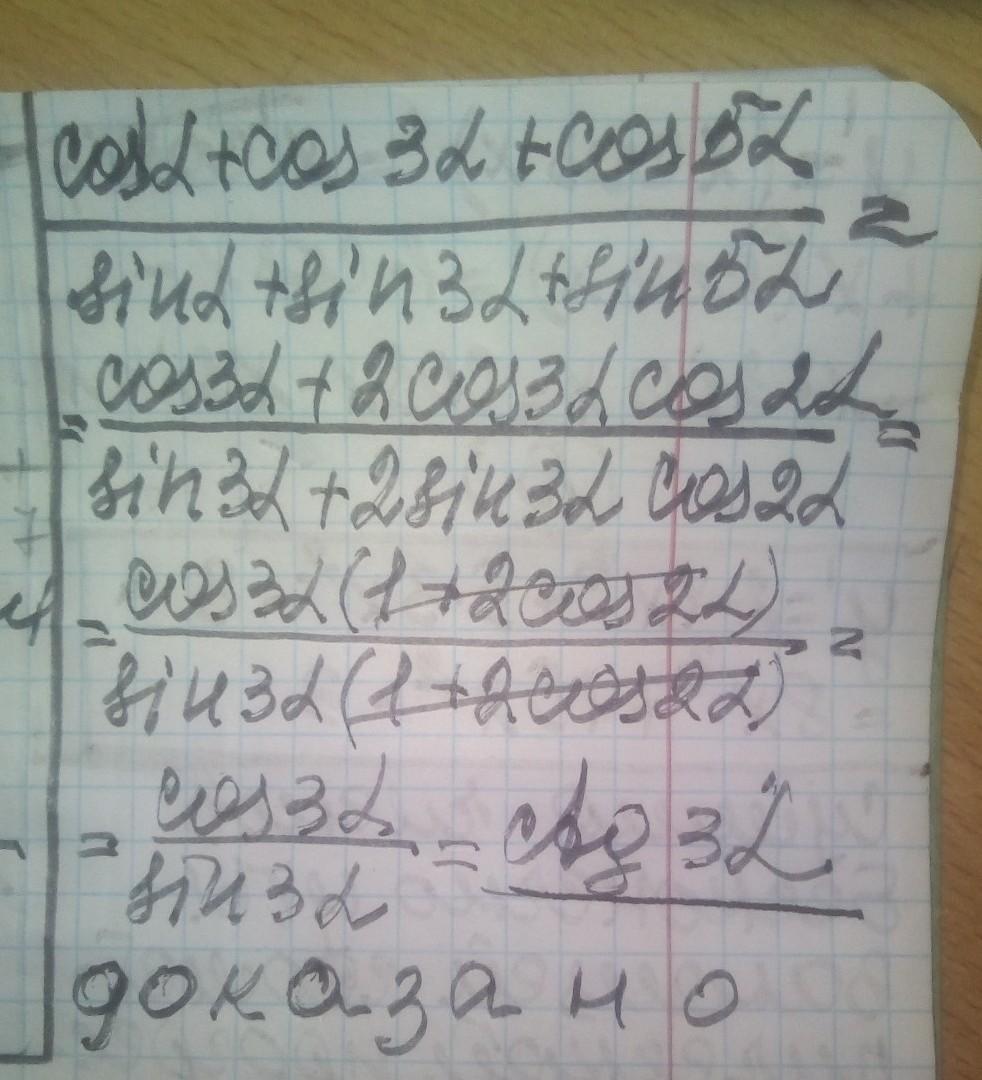 cosα+cos3α+cos5α
=
sinα+sin3α+sin5α
=
cos3α+2cos3αcos2α
=
sin3α+2sin3αcos2α
=
cos3α(1+2cos2α)
=
sin3α(1+2cos2α)
=
cos3α
sin3α
= ctg3α
доказано